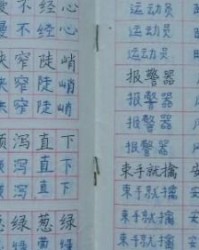 不经心
不经心
窄陡峭
窄陡峭
窄陡峭
泻直下
泻直下
泻直下
绿葱绿
绿葱绿
运动员
运动员
运动员
报警器
报警器
报警器
报警器
束手就擒
束手就擒
束手就擒
束手就擒